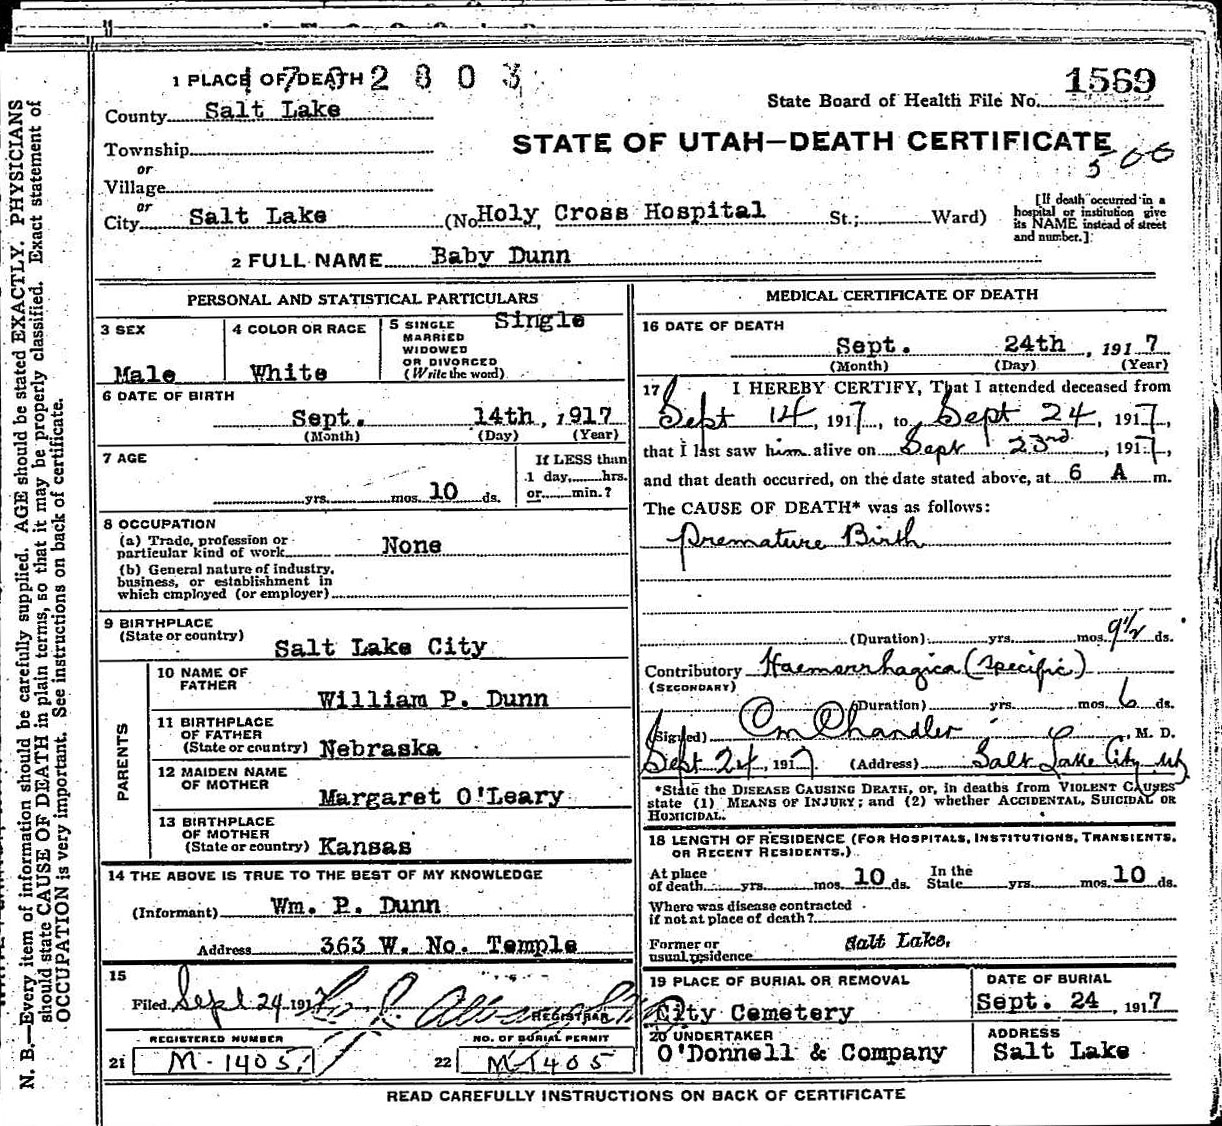 1 PLACE OF DEATH 2803
1569
State Board of Health File No.
County Salt Lake
STATE OF UTAH—DEATH CERTIFICATE
500
Township
or
Village
or
City Salt Lake (No. Holy Cross Hospital St.; Ward)
[If death occurred in a hospital or institution give its NAME instead of street and number.]
2 FULL NAME Baby Dunn
PERSONAL AND STATISTICAL PARTICULARS
3 SEX
Male
4 COLOR OR RACE
White
5 SINGLE
MARRIED
WIDOWED
OR DIVORCED
(Write the word)
Single
6 DATE OF BIRTH
Sept. 14th, 1917
(Month) (Day) (Year)
7 AGE
yrs. mos. 10 ds.
If LESS than
1 day, hrs.
or min.?
8 OCCUPATION
(a) Trade, profession or
particular kind of work None
(b) General nature of industry,
business, or establishment in
which employed (or employer)
9 BIRTHPLACE
(State or country)
Salt Lake City
PARENTS
10 NAME OF
FATHER
William P. Dunn
11 BIRTHPLACE
OF FATHER
(State or country) Nebraska
12 MAIDEN NAME
OF MOTHER
Margaret O'Leary
13 BIRTHPLACE
OF MOTHER
(State or country) Kansas
14 THE ABOVE IS TRUE TO THE BEST OF MY KNOWLEDGE
(Informant) Wm. P. Dunn
Address 363 W. No. Temple
15
Filed Sept 24 1917
REGISTRAR
REGISTERED NUMBER
21 M-1405
NO. OF BURIAL PERMIT
22 M-1405
MEDICAL CERTIFICATE OF DEATH
16 DATE OF DEATH
Sept. 24th, 1917
(Month) (Day) (Year)
17 I HEREBY CERTIFY, That I attended deceased from
Sept 14, 1917, to Sept 24, 1917,
that I last saw him alive on Sept 23rd, 1917,
and that death occurred, on the date stated above, at 6 A m.
The CAUSE OF DEATH* was as follows:
Premature Birth
(Duration) yrs. mos. 9½ ds.
Contributory Haemorrhagica (specific)
(SECONDARY)
(Duration) yrs. mos. 6 ds.
(Signed) Om Chandler, M. D.
Sept 24, 1917 (Address) Salt Lake City Ut
*State the DISEASE CAUSING DEATH, or, in deaths from VIOLENT CAUSES
state (1) MEANS OF INJURY; and (2) whether ACCIDENTAL, SUICIDAL OR
HOMICIDAL.
18 LENGTH OF RESIDENCE (FOR HOSPITALS, INSTITUTIONS, TRANSIENTS,
OR RECENT RESIDENTS.)
At place
of death yrs. mos. 10 ds. In the
State yrs. mos. 10 ds.
Where was disease contracted
if not at place of death?
Former or
usual residence Salt Lake.
19 PLACE OF BURIAL OR REMOVAL
City Cemetery
DATE OF BURIAL
Sept. 24 1917
20 UNDERTAKER
O'Donnell & Company
ADDRESS
Salt Lake
READ CAREFULLY INSTRUCTIONS ON BACK OF CERTIFICATE
N. B.—Every item of information should be carefully supplied. AGE should be stated EXACTLY. PHYSICIANS
should state CAUSE OF DEATH in plain terms, so that it may be properly classified. Exact statement of
OCCUPATION is very important. See instructions on back of certificate.